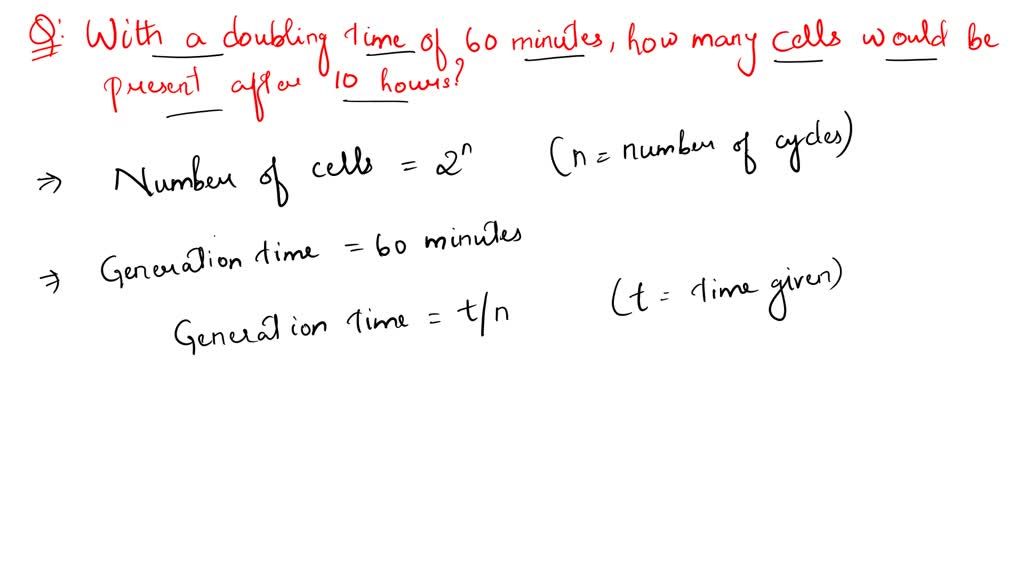 Q: With a doubling time of 60 minutes, how many cells would be
present after 10 hours?
⇒ Number of cells = 2ⁿ (n = number of cycles)
⇒ Generation time = 60 minutes
Generation time = t/n (t = time given)